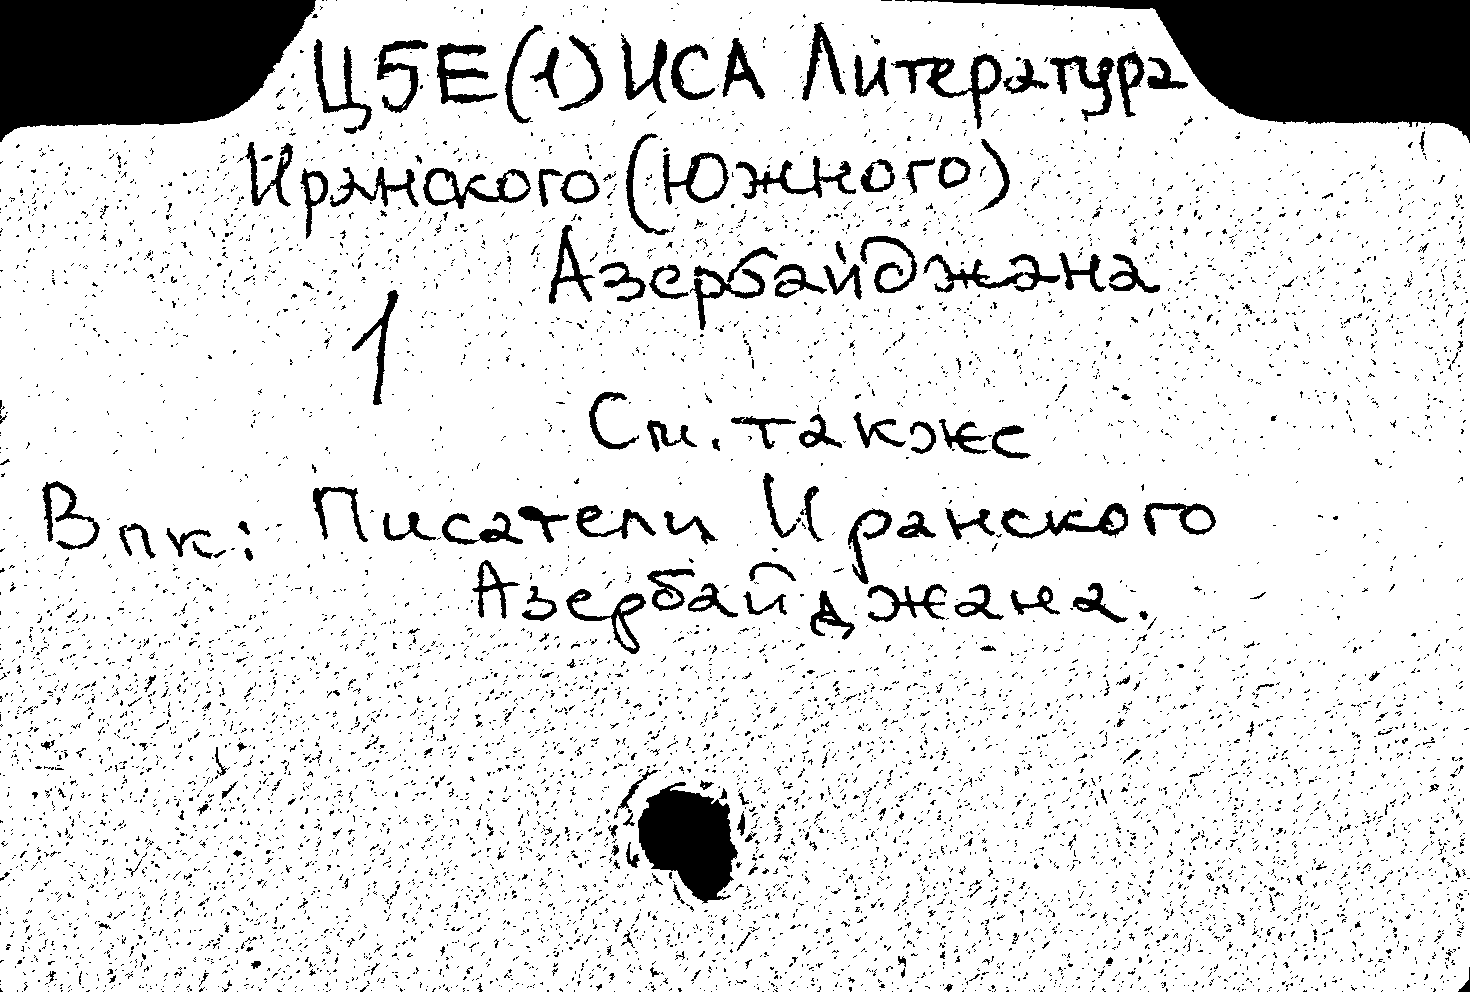 Ц5Е(1)ИСА Литература
Иранского (Южного)
Азербайджана
1
См. также
В пк: Писатели Иранского
Азербайджана.